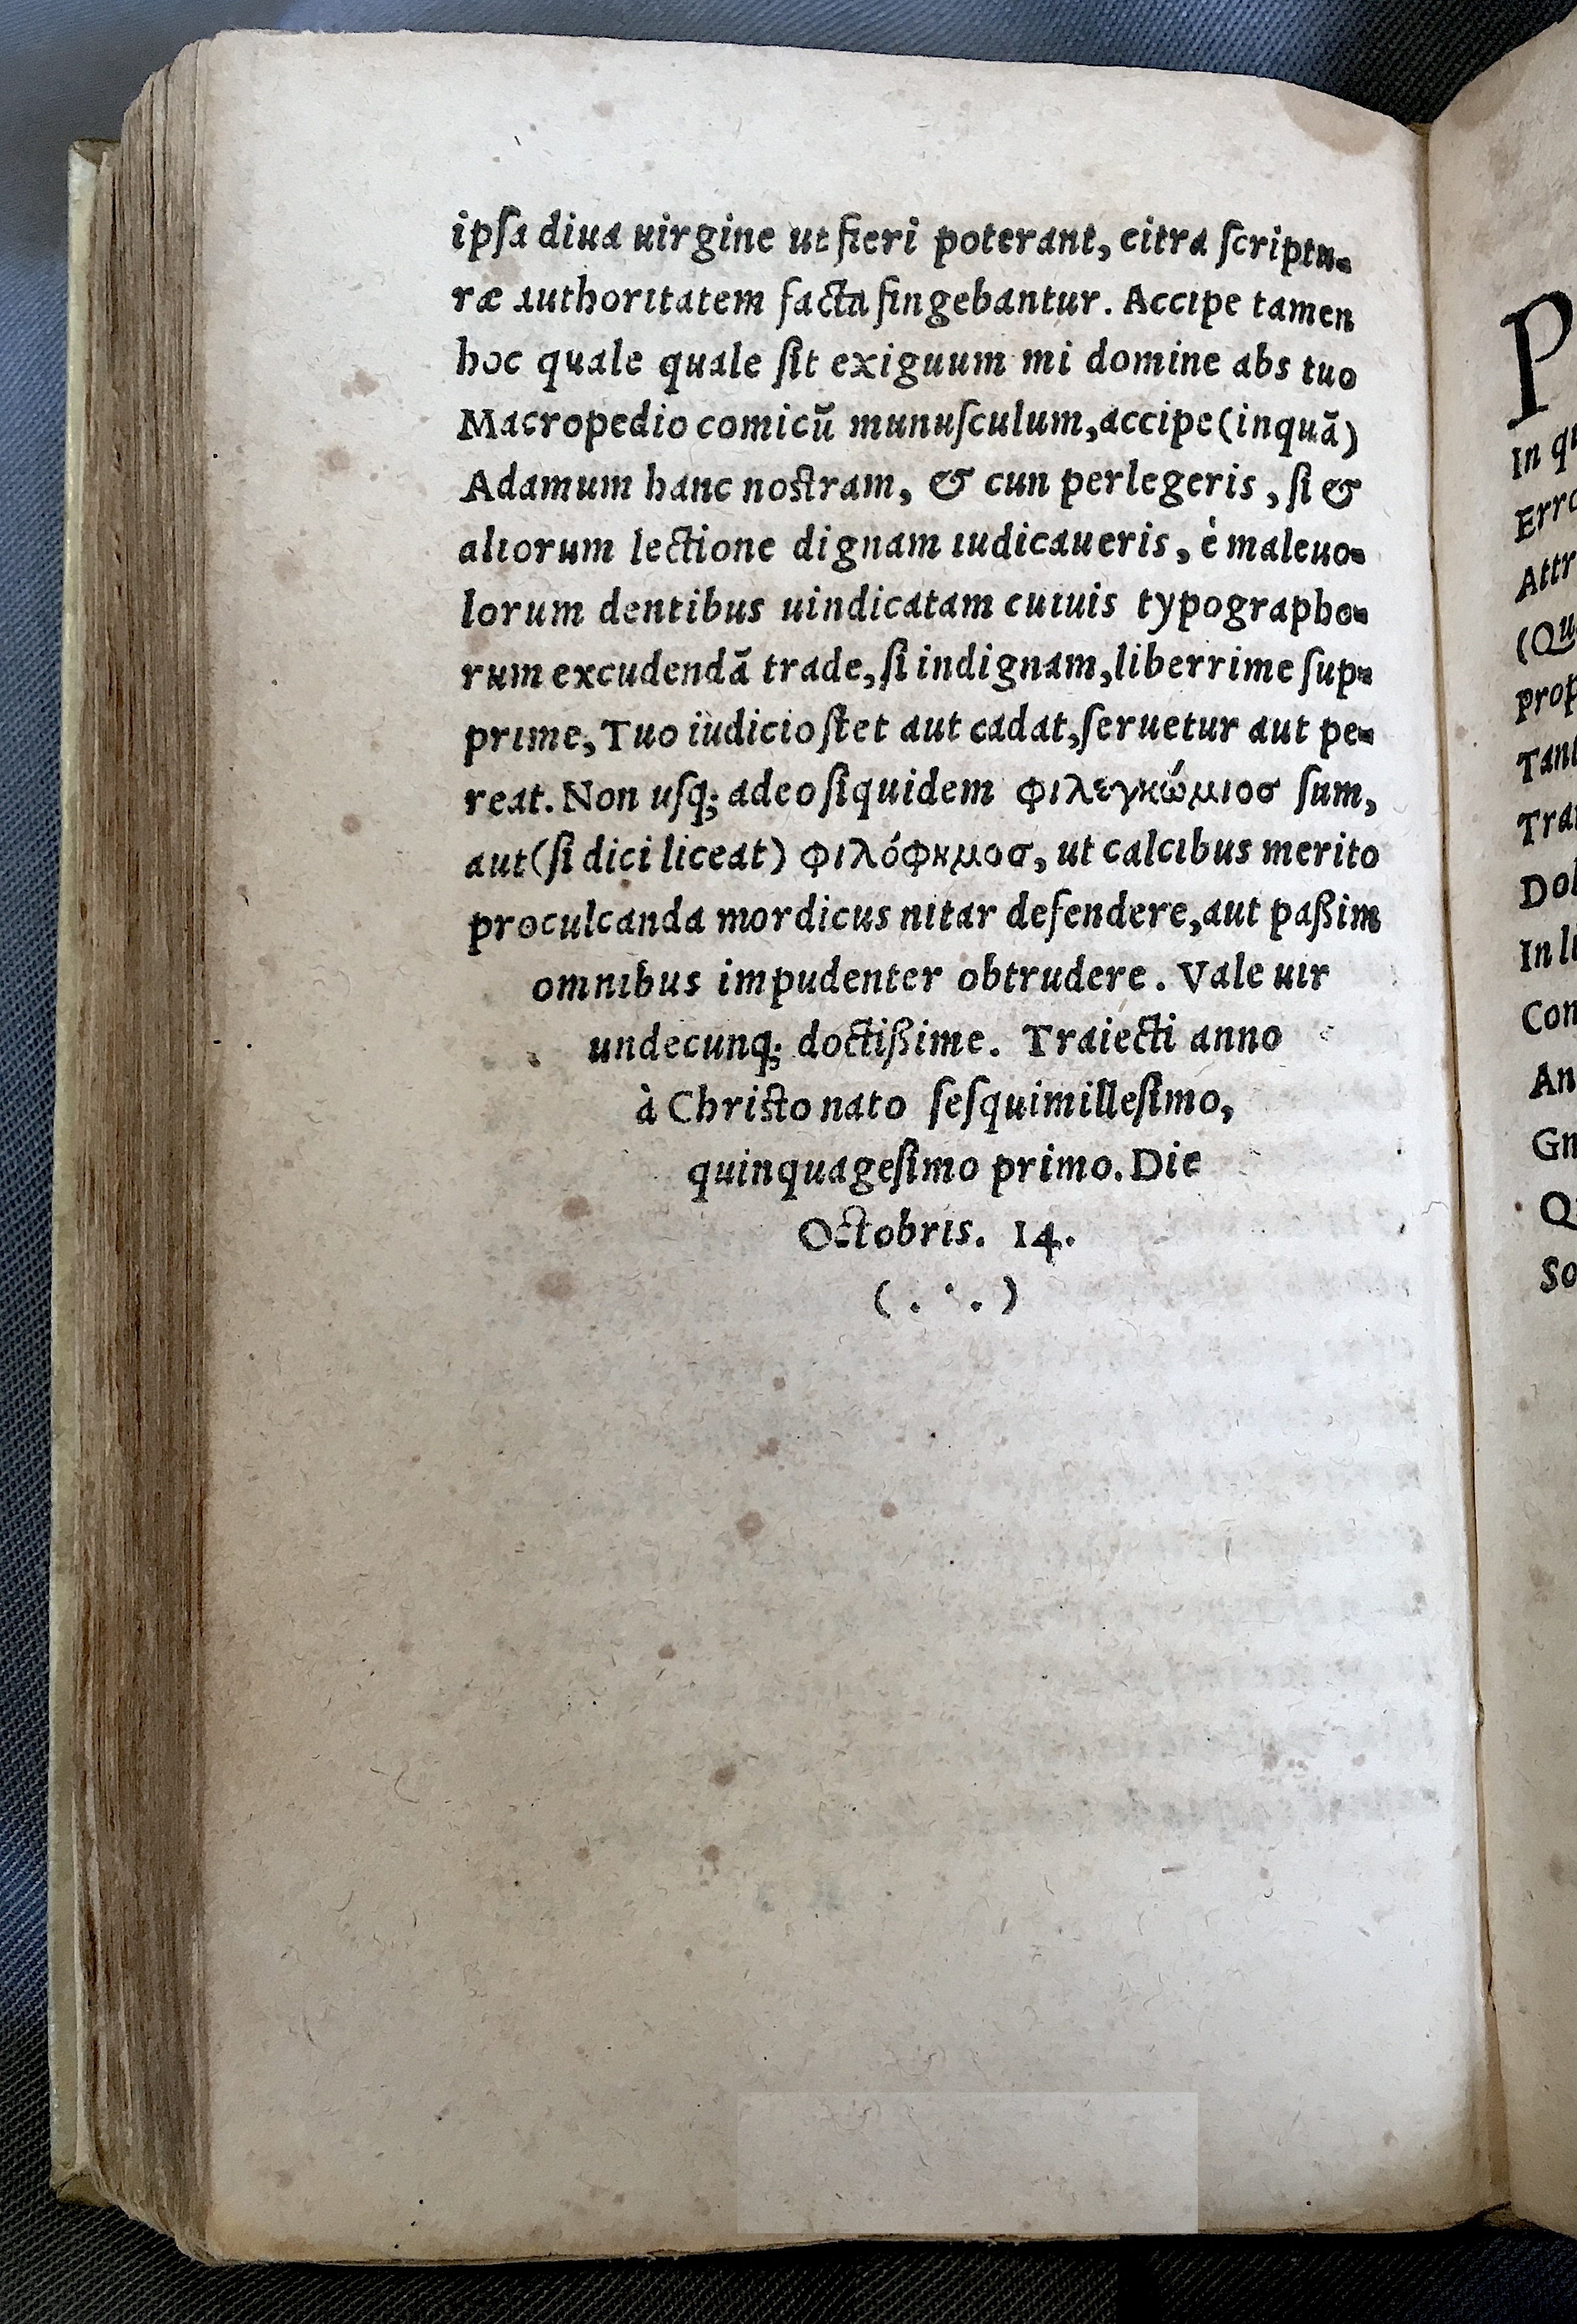 ipſa diua uirgine ut fieri poterant, citra ſcriptu-
ræ authoritatem facta fingebantur. Accipe tamen
hoc quale quale ſit exiguum mi domine abs tuo
Macropedio comicũ munuſculum, accipe (inquã)
Adamum hanc noſtram, & cun perlegeris, ſi &
aliorum lectione dignam iudicaueris, è maleuo-
lorum dentibus uindicatam cuiuis typographo-
rum excudendã trade, ſi indignam, liberrime ſup-
prime, Tuo iùdicio ſtet aut cadat, ſeruetur aut pe-
reat. Non uſq; adeo ſiquidem φιλεγκώμιοσ ſum,
aut (ſi dici liceat) φιλόφημοσ, ut calcibus merito
proculcanda mordicus nitar defendere, aut paßim
omnibus impudenter obtrudere. Vale uir
undecunq; doctißime. Traiecti anno
à Chriſto nato ſeſquimilleſimo,
quinquageſimo primo. Die
Octobris. 14.
(.·.)
P
In qu
Erro
Attr
(Qu
prop
Tant
Tra
Dol
In li
Con
An
Gn
Q
So